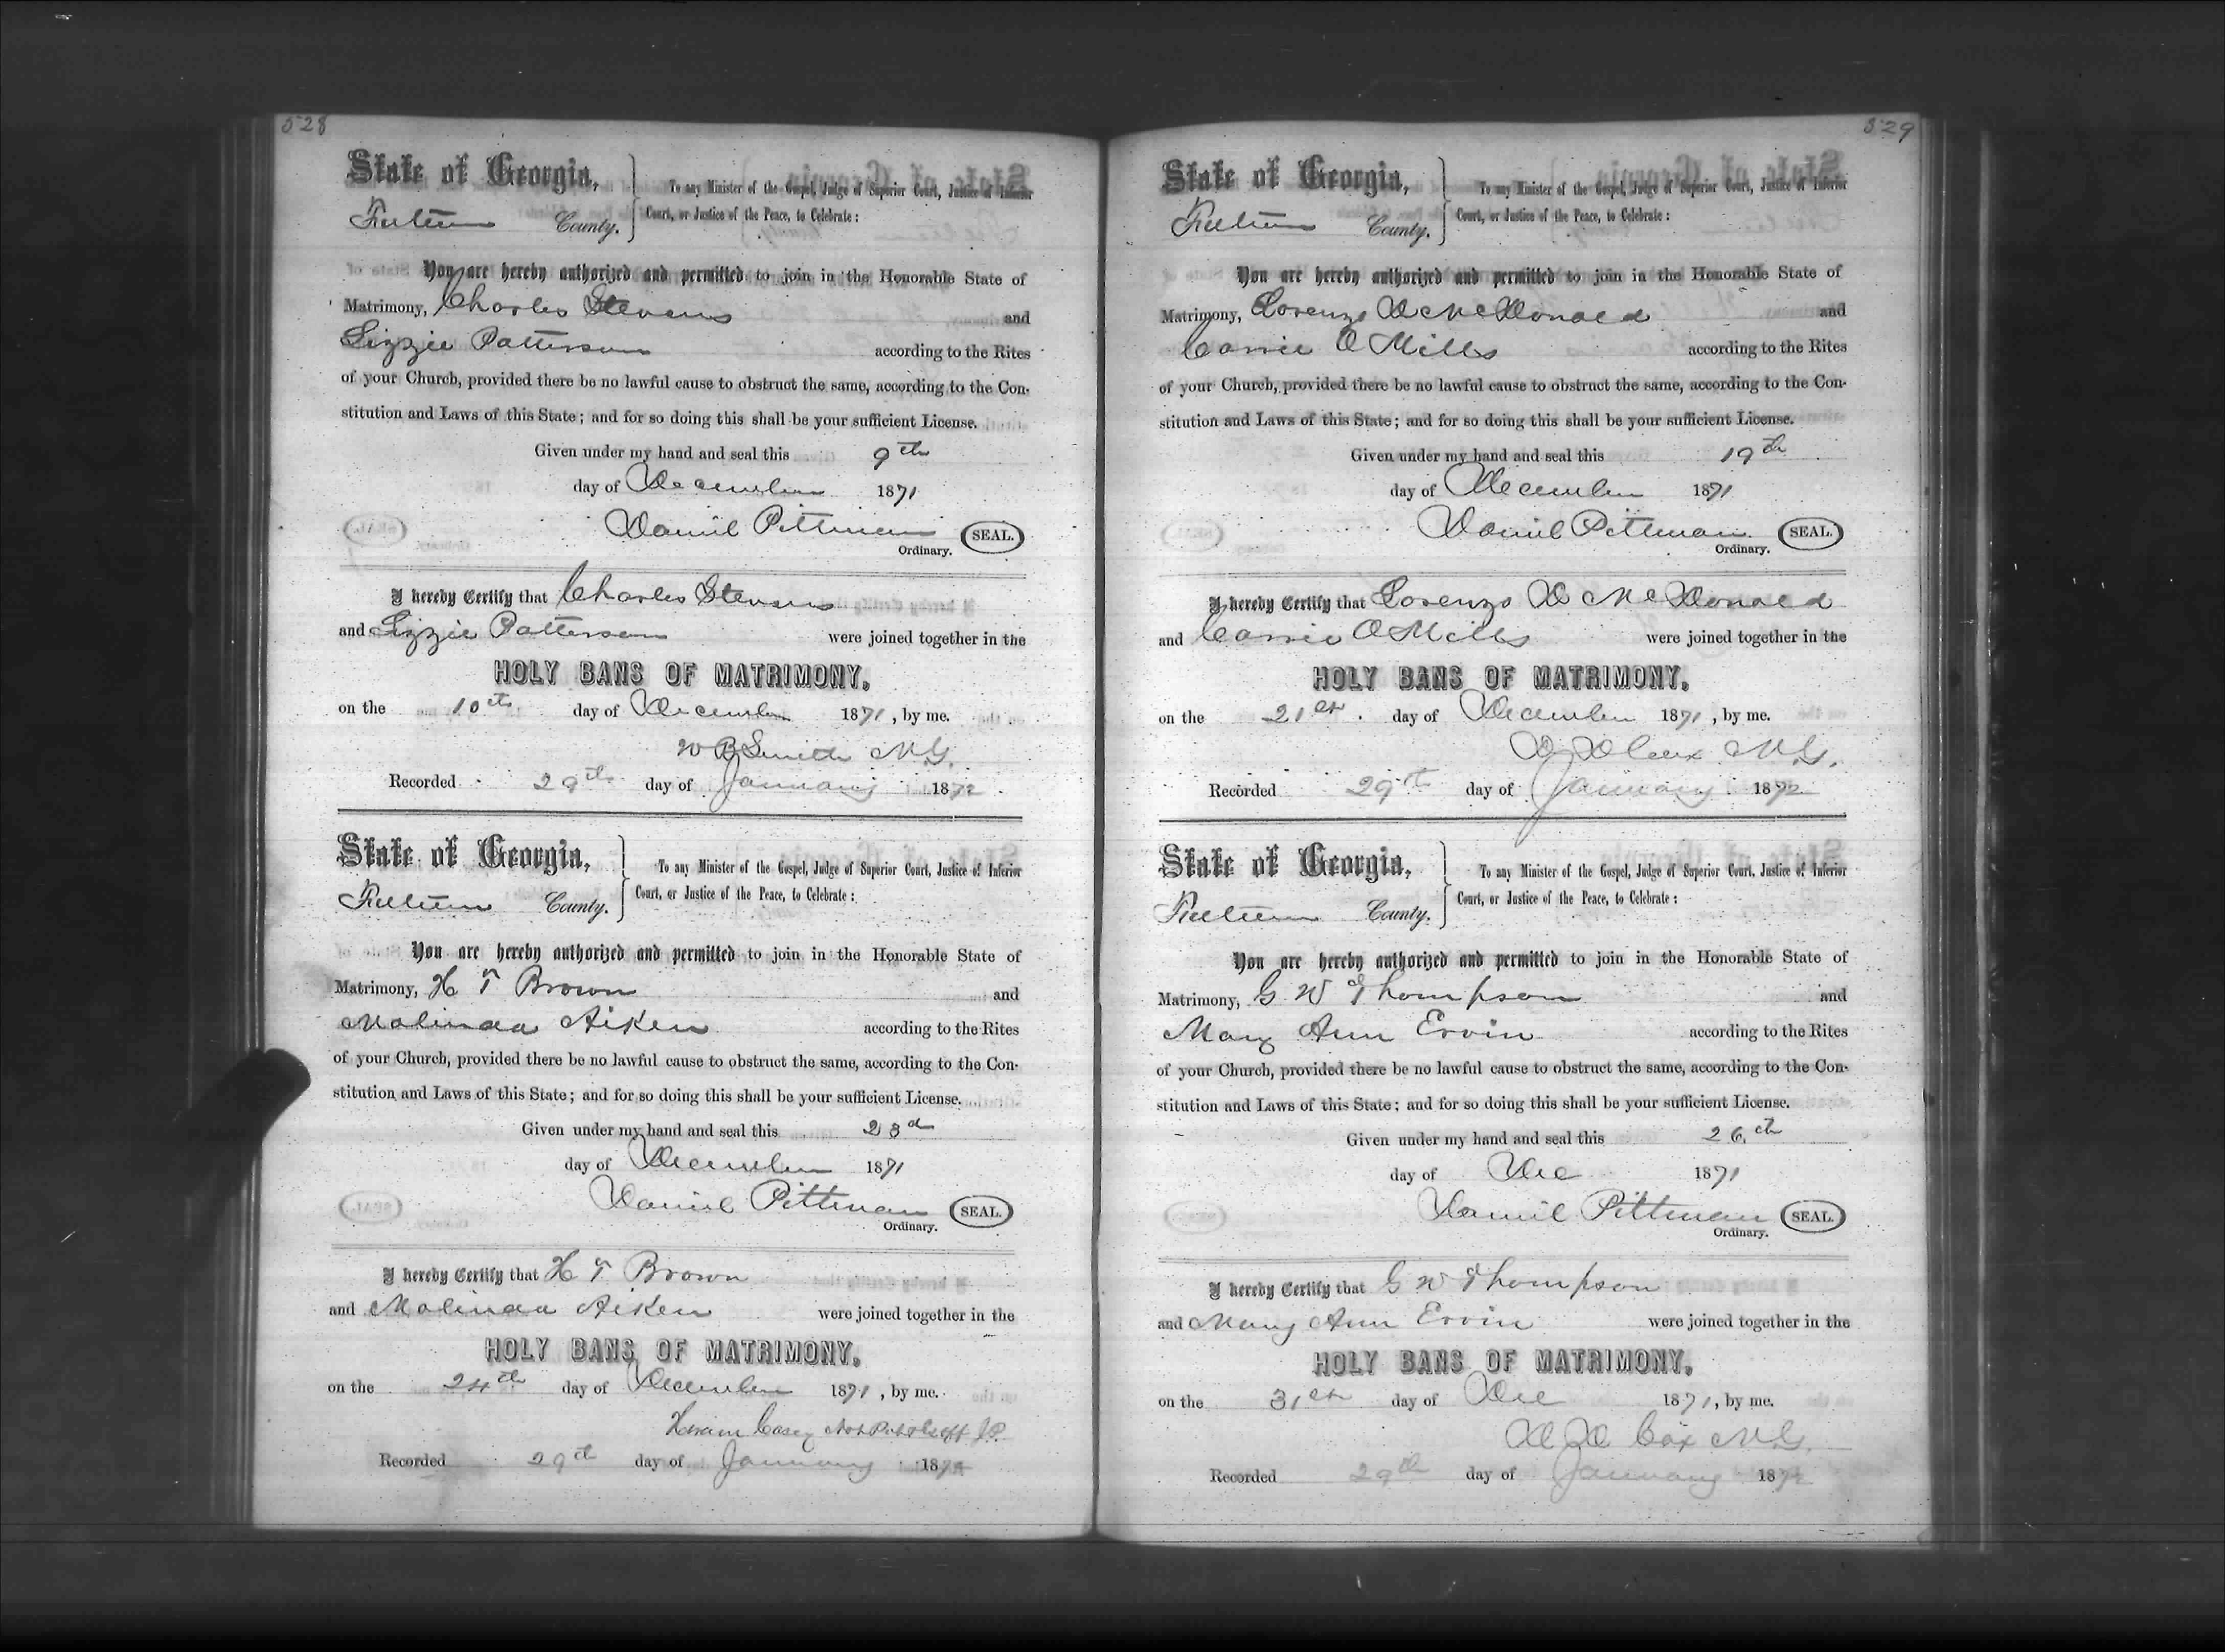 528
State of Georgia, To any Minister of the Gospel, Judge of Superior Court, Justice of Inferior
Fulton County. Court, or Justice of the Peace, to Celebrate :
You are hereby authorized and permitted to join in the Honorable State of
Matrimony, Charles Stevens and
Lizzie Patterson according to the Rites
of your Church, provided there be no lawful cause to obstruct the same, according to the Con-
stitution and Laws of this State; and for so doing this shall be your sufficient License.
Given under my hand and seal this 9th
day of December 1871
Daniel Pittman SEAL.
Ordinary.
I hereby Certify that Charles Stevens
and Lizzie Patterson were joined together in the
HOLY BANS OF MATRIMONY,
on the 10th day of December 1871, by me.
W B Smith M.G.
Recorded 29th day of January 1872
State of Georgia, To any Minister of the Gospel, Judge of Superior Court, Justice of Inferior
Fulton County. Court, or Justice of the Peace, to Celebrate :
You are hereby authorized and permitted to join in the Honorable State of
Matrimony, H T Brown and
Malinda Aiken according to the Rites
of your Church, provided there be no lawful cause to obstruct the same, according to the Con-
stitution and Laws of this State; and for so doing this shall be your sufficient License.
Given under my hand and seal this 23d
day of December 1871
Daniel Pittman SEAL.
Ordinary.
I hereby Certify that H T Brown
and Malinda Aiken were joined together in the
HOLY BANS OF MATRIMONY,
on the 24th day of December 1871, by me.
Hiram Casey Not Pub J.P.
Recorded 29th day of January 1872
529
State of Georgia, To any Minister of the Gospel, Judge of Superior Court, Justice of Inferior
Fulton County. Court, or Justice of the Peace, to Celebrate :
You are hereby authorized and permitted to join in the Honorable State of
Matrimony, Lorenzo D McDonald and
Carrie O Mills according to the Rites
of your Church, provided there be no lawful cause to obstruct the same, according to the Con-
stitution and Laws of this State; and for so doing this shall be your sufficient License.
Given under my hand and seal this 19th
day of December 1871
Daniel Pittman SEAL.
Ordinary.
I hereby Certify that Lorenzo D McDonald
and Carrie O Mills were joined together in the
HOLY BANS OF MATRIMONY,
on the 21st day of December 1871, by me.
D D Cox M.G.
Recorded 29th day of January 1872
State of Georgia, To any Minister of the Gospel, Judge of Superior Court, Justice of Inferior
Fulton County. Court, or Justice of the Peace, to Celebrate :
You are hereby authorized and permitted to join in the Honorable State of
Matrimony, G W Thompson and
Mary Ann Ervin according to the Rites
of your Church, provided there be no lawful cause to obstruct the same, according to the Con-
stitution and Laws of this State; and for so doing this shall be your sufficient License.
Given under my hand and seal this 26th
day of Dec 1871
Daniel Pittman SEAL.
Ordinary.
I hereby Certify that G W Thompson
and Mary Ann Ervin were joined together in the
HOLY BANS OF MATRIMONY,
on the 31st day of Dec 1871, by me.
D D Cox M.G.
Recorded 29th day of January 1872